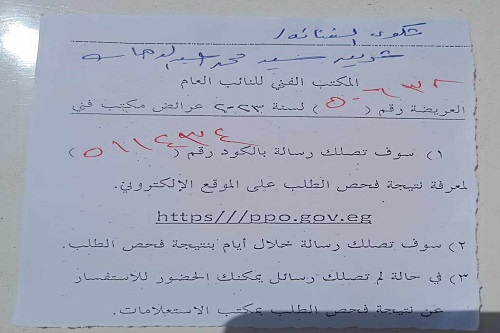 شكوى استغاثة /
شريف سيد محمد عبد الوهاب
المكتب الفني للنائب العام
العريضة رقم ( ) لسنة ٢٠٢٣ عرائض مكتب فني
١) سوف تصلك رسالة بالكود رقم (٥١١٤٣٤)
لمعرفة نتيجة فحص الطلب على الموقع الإلكتروني.
https///ppo.gov.eg
٢) سوف تصلك رسالة خلال أيام بنتيجة فحص الطلب.
٣) في حالة لم تصلك رسائل يمكنك الحضور للاستفسار
عن نتيجة فحص الطلب بمكتب الاستعلامات.